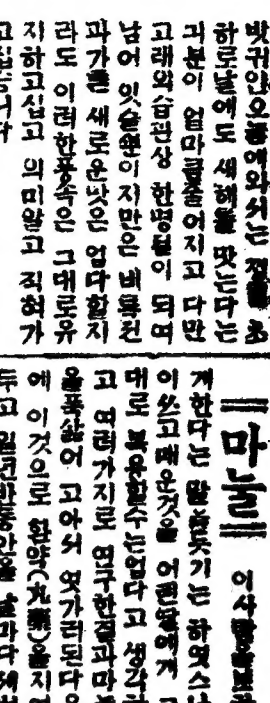 밧귀인오늘에와서는
하로날에도 새해를 맛는다는
긔분이 얼마큼줄어지고 다만
고래의습관상 한명절이 되여
남어 잇슬뿐이지만은 비록된
과가를 새로운낫은 업다할지
라도 이러한풍속은 그대로유
지하고십고 의미알고 직혀가
고십흡니다
마눌
이사람을보
게한다는 말을듯기는 하엿스나
이쓰고매운것을 어린들에게
대로 복용할수는업다고 생각
고 여러가지로 연구한결과마
을푹삶어 고아서 엿가티된다음
에 이것으로 환약(丸藥)을지여
두고 일년반동안을 날마다세